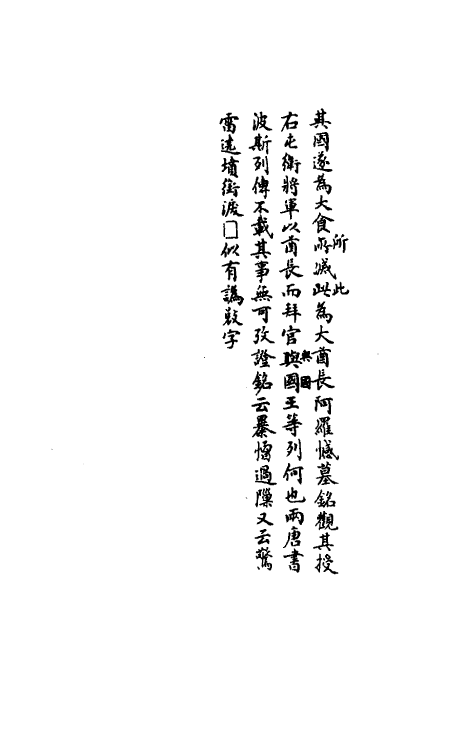 其國遂為大食所滅此為大酋長阿羅憾墓銘觀其授
右屯衛將軍以酋長而拜官與國王等列何也兩唐書
波斯列傳不載其事無可攷證銘云暴慴過隟又云驚
雷遶墳銜渡□似有譌敚字
所
此
與國